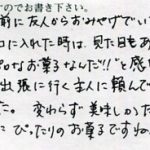 すのでお書き下さい。
前に友人からおみやげでい
口に入れた時は、見た目もあ
なお菓子なんだ!!"と感
出張に行く主人に頼んで
た。変わらず美味しかった
にぴったりのお菓子ですね